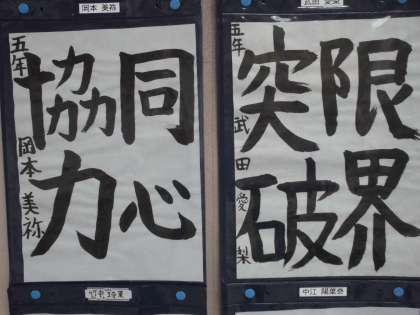 岡本 美祢
同心
協力
五年 岡本美祢
武田 愛梨
限界
突破
五年 武田愛梨
中江